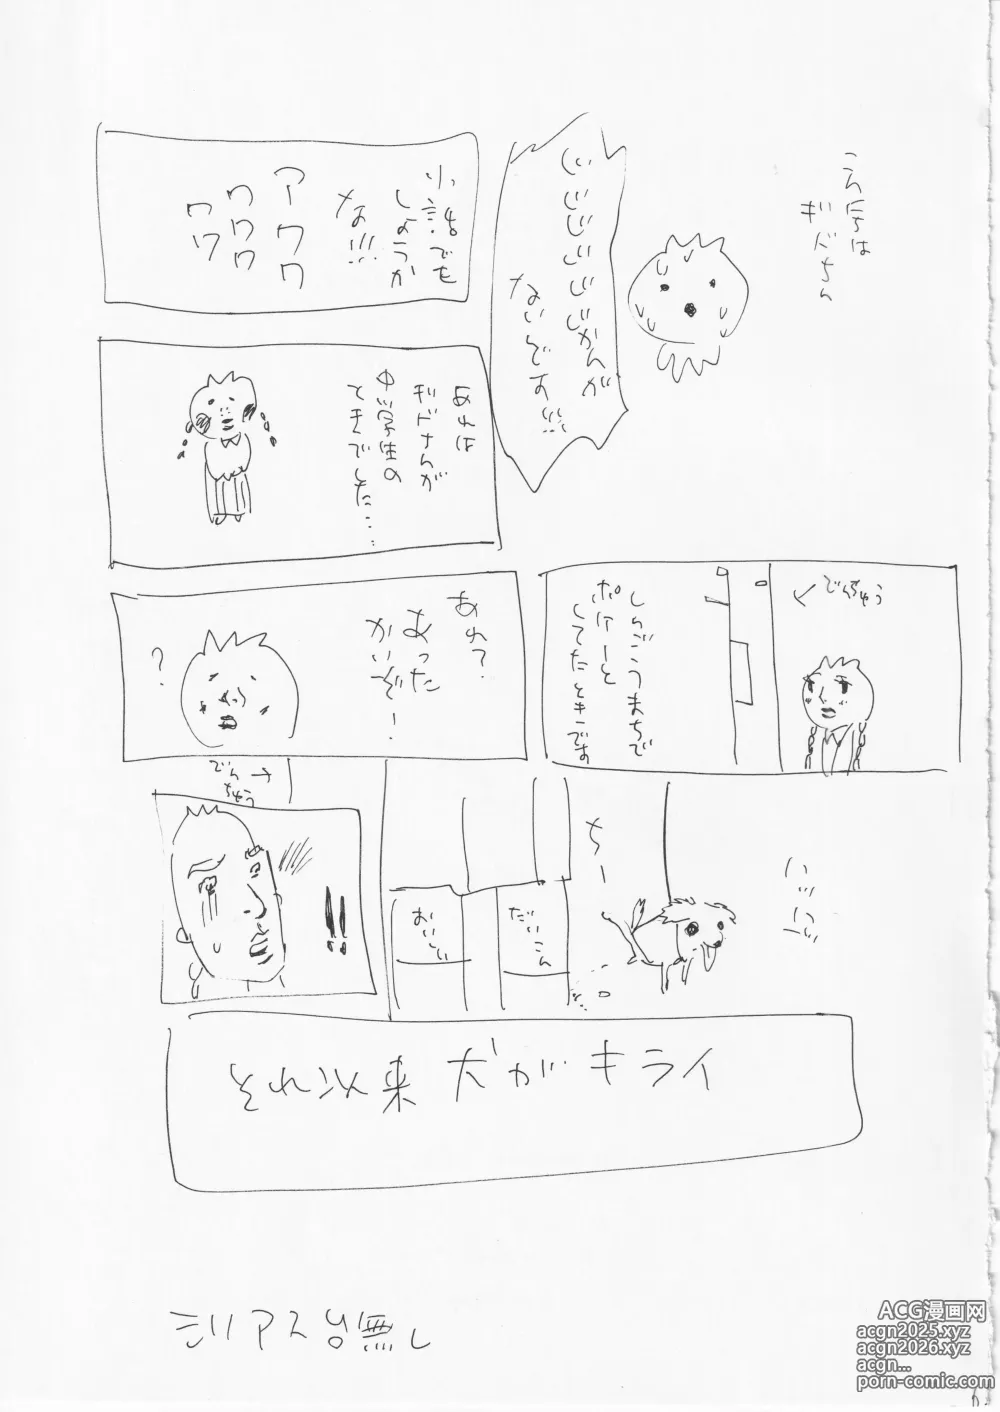 こんにちは
ギドちん
じじじじじじかんが
ないんです!!!
小話でも
しようか
な!!!
アワワワ
ワワワワ
ワワ
あれは
ギドちんが
中学生の
ときでした……
でんちゅう
しんごうまちで
ポけーと
してたときです
あれ?
あった
かいぞ!
?
ハッハッ
ちー
だいこん
おいしい
でん
ちゅう
!!
それ以来犬がキライ
シリアス台無し
ACG漫画网
acgn2025.xyz
acgn2026.xyz
acgn...
porn-comic.com